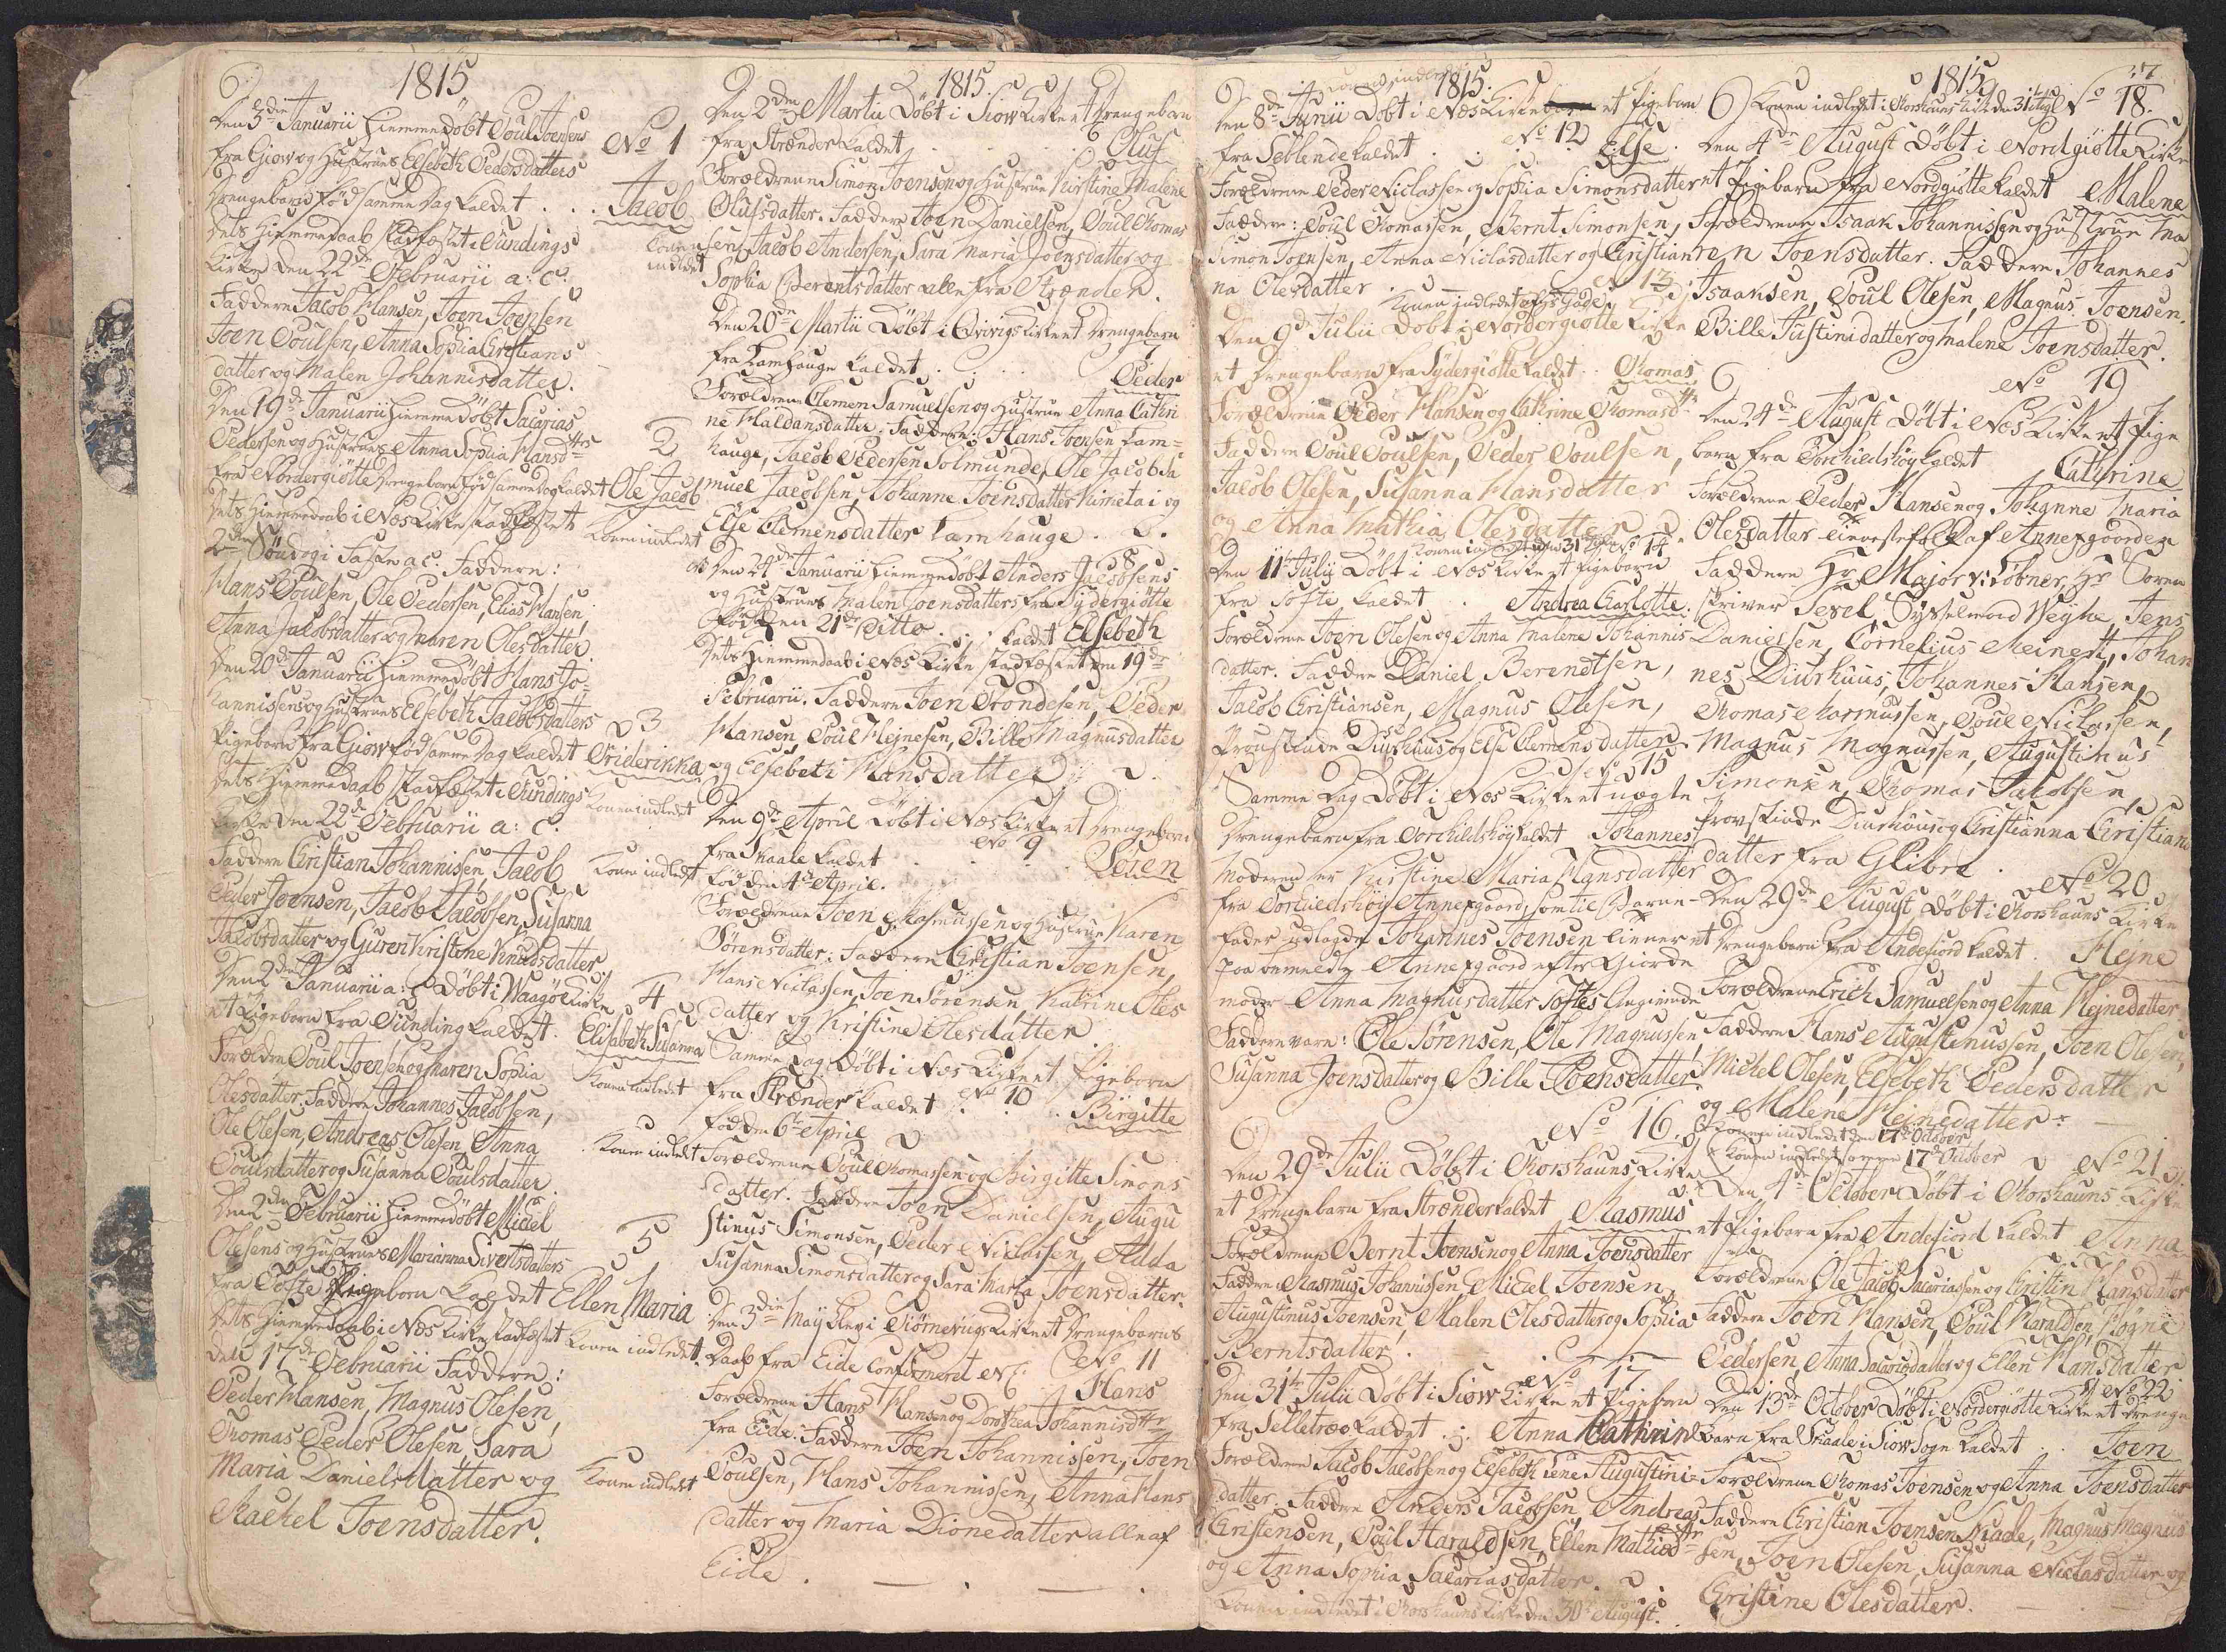 1815
Den 3die Januarii Hiemmedöbt Poul Joensens
fra Giow og Hustrues Elsebeth Pedersdatters
No 1
Drengebarn fød samme Dag kaldet . . . Jacob
dets Hiemmedaab stadfæstet i Fundings
Kirke den 22de Februarii a: c:
Konen indledt
Faddere Jacob Hansen, Joen Joensen
Joen Poulsen, Anna Sophia Christians
datter og Malen Johannisdatter.
Den 19de Januarii Hiemmedöbt Sacarias
Pedersen og Hustrues Anna Sophia Hansdtrs
2
fra Nordergiötte Drengebarn fød samme Dag kaldet Ole Jacob
dets Hiemmedaab i Næs Kirke stadfæstet
Konen indledet
2den Söndag i Fasten a c. Faddere:
Hans Poulsen, Ole Pedersen, Elias Hansen,
Anna Jacobsdatter og Maren Olesdatter.
Den 20de Januarii Hiemmedöbt Hans Jo-
hannisens og Hustrues Elsebeth Jacobsdatters
3
Pigebarn fra Giow fød samme Dag kaldet Friderikka
dets Hiemmedaab stadfæstet i Fundings
Konen indledt
Kirke den 22de Februarii a: c.
Faddere Christian Johannisen, Jacob
Konen indledt
Peder Joensen, Jacob Jacobsen, Susanna
Jacobsdatter og Guren Kristine Knudsdatter
Den 2den Januarii a: c Döbt i Waagöe Kirke
4
et Pigebarn fra Funding kaldet. Elisabeth Susanna
Forældre Poul Joensen og Maren Sophia
Konen indledt
Olesdatter. Faddere Johannes Jacobsen,
Ole Olesen, Andreas Olesen, Anna
Konen indledt
Poulsdatter og Susanna Poulsdatter.
Den 2den Februarii Hiemmedöbt Michel
Olesens og Hustrues Marianna Sivertsdatters
5
fra Tofte Pigebarn kaldet Ellen Maria
dets Hiemmedaab i Næs Kirke stadfæstet
Konen indledet.
den 17de Februarii Faddere:
Peder Hansen, Magnus Olesen,
Thomas Peder Olesen, Sara
Maria Danielsdatter og
Konen indledt
Rachel Joensdatter.
1815.
Den 2den Martii Döbt i Siow Kirke et Drengebarn
fra Strænder kaldet . . . Oluf
Forældrene Simon Joensen og Hustrue Kirstine Malene
Olufsdatter. Faddere Joen Danielsen, Poul Thomas
sen, Jacob Andersen, Sara Maria Joensdatter og
Sophia Berentsdatter alle fra Strænder.
Den 20de Martii Döbt i Qvivigs Kirke et Drengebarn
7
fra Lamhauge kaldet . . . Peder
Forældrene Clemen Samuelsen og Hustrue Anna Cathri
ne Haldansdatter. Faddere: Hans Joensen Lam-
hauge, Jacob Pedersen Solmunde, Ole Jacob Sa
muel Jacobsen, Johanne Joensdatter og
Else Clemensdatter Lamhauge.
8
Den 24de Januarii Hiemmedöbt Anders Jacobsens
og Hustrues Malen Joensdatters fra Sydergiötte
Fød den 21de Ditto . . . kaldet Elsebeth
dets Hiemmedaab i Næs Kirke stadfæstet den 19de
Februarii. Faddere Joen Trondesen, Peder
Hansen, Poul Hejnesen, Bille Magnusdatter
og Elsebeth Hansdatter.
Den 9de April Döbt i Næs Kirke et Drengebarn
No 9
fra Skaale kaldet . . . Sören
fød den 4de April.
Forældrene Joen Rasmussen og Hustrue Karen
Sörensdatter. Faddere Christian Joensen,
Hans Niclassen, Joen Sörensen, Katrine Oles
datter og Kristine Olesdatter.
Samme Dag Döbt i Næs Kirke et Pigebarn
No 10
fra Strænder kaldet . . . Birgitte
fød den 6te April
Forældrene Poul Thomassen og Birgitte Simons
datter. Faddere Joen Danielsen, Augu
stinus Simonsen, Peder Niclassen, Adda
Susanna Simonsdatter og Sara Maria Joensdatter.
Den 3die May blev i Tiörnevigs Kirke et Drengebarns
Daab fra Eide Confirmeret
No 11
Hans
Forældrene Hans Hansen og Dorthea Johannisdttr
fra Eide. Faddere Joen Johannissen, Joen
Poulsen, Hans Johannissen, Anna Hans
datter og Maria Dionedatter alle af
Eide.
1815.
Konen indledt
Den 8de Junii Döbt i Næs Kirke et Pigebarn
No 12
fra Selletræ kaldet . . . Else.
Forældrene Peder Niclassen og Sophia Simonsdatter
Faddere: Poul Thomassen, Bernt Simonsen,
Simon Joensen, Anna Niclasdatter og Christian
na Olesdatter.
No 13
Den 9de Julii Döbt i Nordergiötte Kirke
et Drengebarn fra Sydergiötte kaldet . . Thomas
Forældrene Peder Hansen og Cathrine Thomasdttr
Faddere Poul Poulsen, Peder Poulsen,
Jacob Olesen, Susanna Hansdatter
og Anna Mathia Olesdatter.
No 14
Den 11te Julii Döbt i Næs Kirke et Pigebarn
fra Tofte kaldet . . Andrea Charlotte.
Forældrene Joen Olesen og Anna Malene Johannis
datter. Faddere Daniel Berendtsen,
Jacob Christiansen, Magnus Olesen,
Provstinde Diurhuus og Else Clemensdatter.
No 15
Samme Dag Döbt i Næs Kirke et uægte
Drengebarn fra Torchildshöy kaldet Johannes
Moderen er Kirstine Maria Hansdatter
fra Torchildshöy Annexgaard, som til Barne-
fader udlagde Johannes Joensen tienner
paa anmeldte Annexgaard efter Giorde
moder Anna Magnusdatter Toftes Angivende
Faddere vare: Ole Sörensen, Ole Magnussen,
Susanna Joensdatter og Bille Joensdatter.
No 16.
Den 29de Julii Döbt i Thorshauns Kirke
et Drengebarn fra Strænder kaldet Rasmus
Forældrene Bernt Joensen og Anna Joensdatter
Faddere Rasmus Johannissen, Michel Joensen,
Augustinus Joensen, Malen Olesdatter og Sophia
Berntsdatter.
No 17
Den 31te Julii Döbt i Siow Kirke et Pigebarn
fra Selletræ kaldet . . Anna Cathrin
Forældrene Jacob Jacobsen og Elsebeth Lene Augustini-
datter. Faddere Anders Jacobsen, Andreas
Christensen, Poul Haraldsen, Ellen Mathiasdtr
og Anna Sophia Sacariasdatter.
Konen indledet i Thorshauns Kirke den 30te August.
1815
7
Konen indledt i Thorshauns Kirke den 31te Aug:
No 18.
Den 4de August Döbt i Nordgiötte Kirke
et Pigebarn fra Nordgiötte kaldet Malene
Forældrene Isaak Johannissen og Hustrue Ma
ren Joensdatter. Faddere Johannes
Isaaksen, Poul Olesen, Magnus Joensen,
Bille Justinidatter og Malene Joensdatter.
No 19
Den 24de August Döbt i Næs Kirke et Pige
barn fra Torchieldshöy kaldet Cathrine
Forældrene Peder Hansen og Johanne Maria
Olesdatter tienestefolk af Annexgaarden
Faddere Hr Major v: Löbner, Hr Soren
skriver Sexel, Sysselmand Weyhe, Jens
Danielsen, Cornelius Meinert, Johan
nes Diurhuus, Johannes Hansen,
Thomas Rasmussen, Poul Niclassen,
Magnus Magnussen, Augustinus
Simonsen, Thomas Jacobsen,
Provstinde Diurhuus og Christianna Christians
datter fra Glibre.
No 20
Den 29de August Döbt i Thorshauns Kirke
et Drengebarn fra Andefiord kaldet . Hejne
Forældrene Erich Samuelsen og Anna Hejnedatter
Faddere Hans Augustinussen, Joen Olesen,
Michel Olesen, Elsebeth Pedersdatter
og Malene Hejnedatter.
Konen indledet den 17de October
Konen indledet samme 17de October
No 21
Den 4de October Döbt i Thorshauns Kirke
et Pigebarn fra Andefiord kaldet Anna
Forældrene Ole Jacob Sacariasen og Christin Hansdatter
Faddere Joen Hansen, Poul Haraldsen, Högne
Pedersen, Anna Sacariasdatter og Ellen Hansdatter
No 22
Den 13de October Döbt i Nordergiötte Kirke et Drenge
barn fra Skaale i Siow Sogn kaldet . . Joen
Forældrene Thomas Joensen og Anna Joensdatter
Faddere Christian Joensen Skaale, Magnus Magnus
sen, Joen Olesen, Susanna Niclasdatter og
Christine Olesdatter.